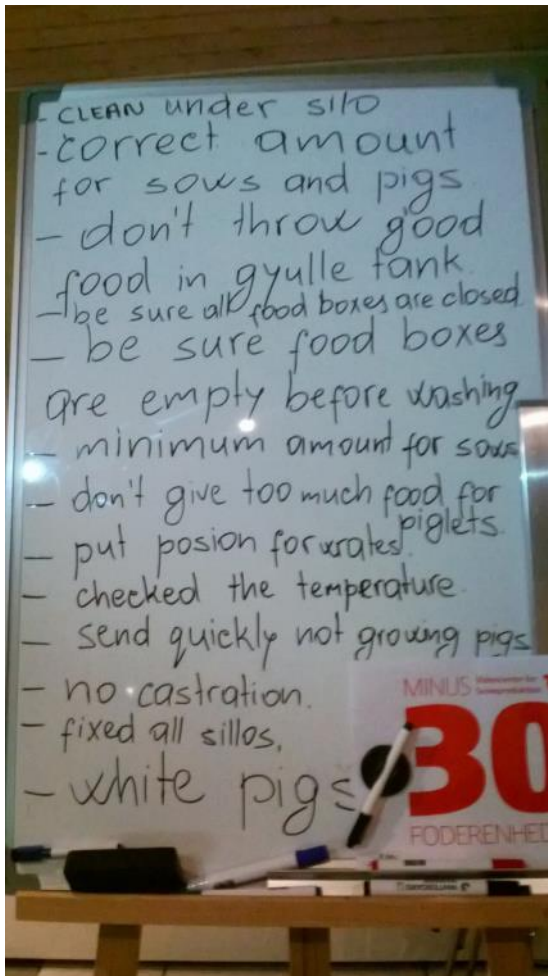 - CLEAN under silo
- correct amount
for sows and pigs
- don't throw good
food in gyulle tank.
- be sure all food boxes are closed.
- be sure food boxes
are empty before washing
- minimum amount for sows
- don't give too much food for
piglets.
- put posion for wrates.
- checked the temperature.
- send quickly not growing pigs
- no castration.
- fixed all sillos.
- white pigs
MINUS Videncenter for
Svineproduktion
30
FODERENHED